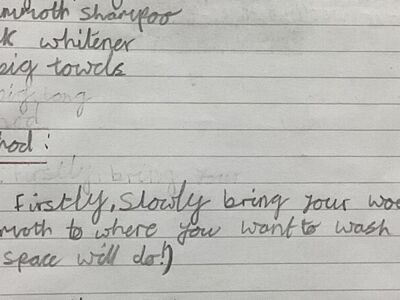 mmoth shampoo
k whitener
big towels
hod:
Firstly, slowly bring your woo
mmoth to where you want to wash
space will do!)